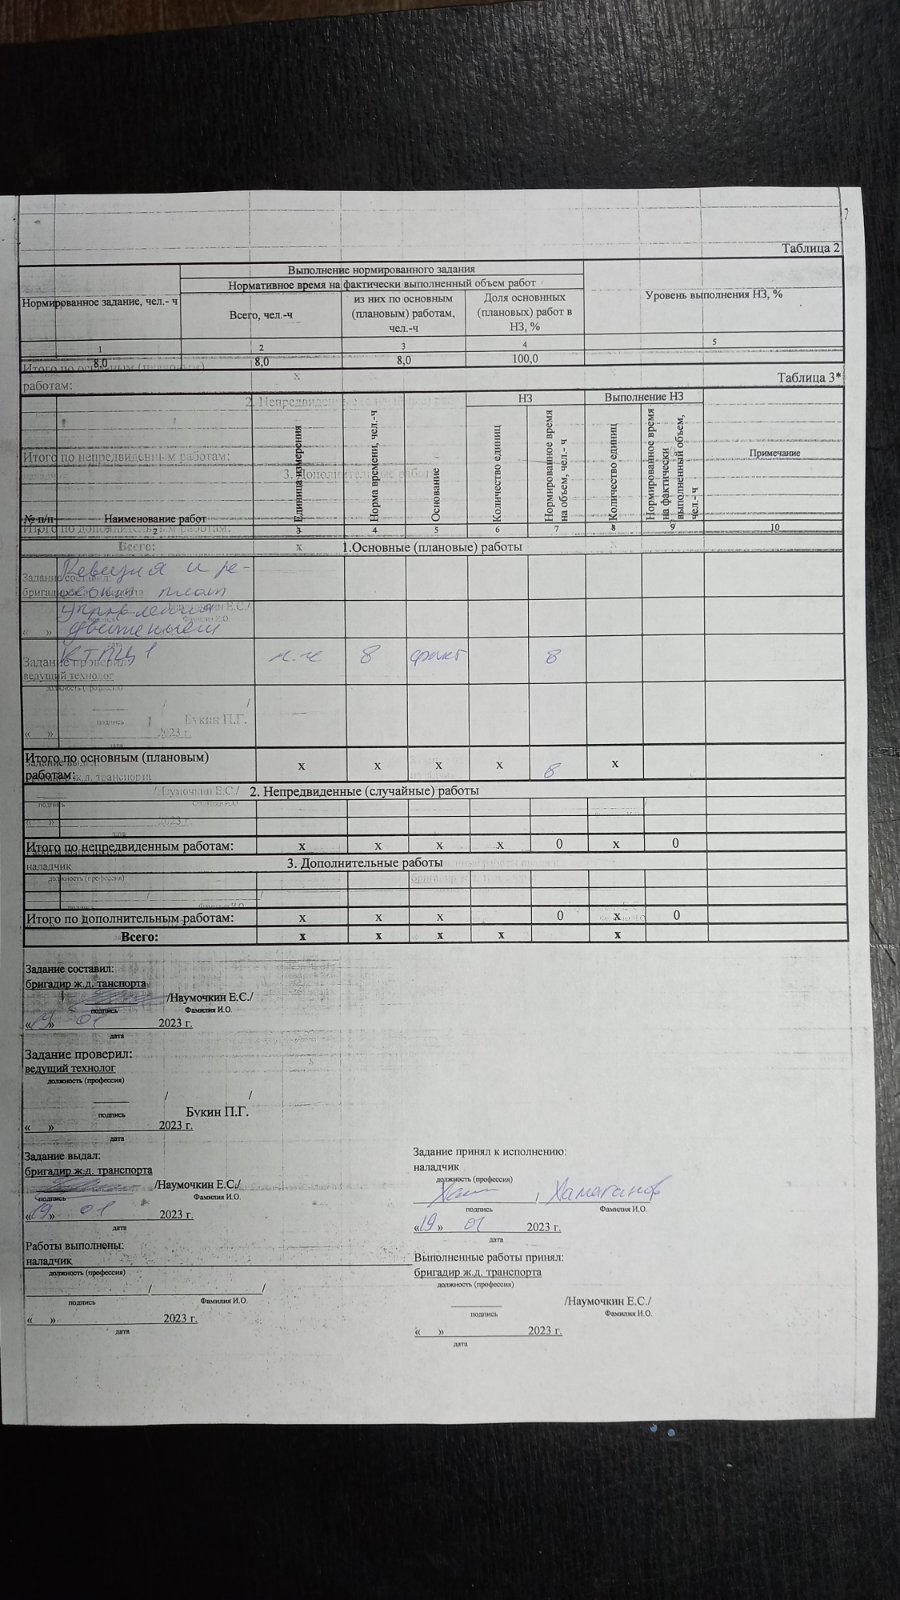 Таблица 2
Нормированное задание, чел.- ч
Выполнение нормированного задания
Нормативное время на фактически выполненный объем работ
Всего, чел.-ч
из них по основным (плановым) работам, чел.-ч
Доля основнных (плановых) работ в НЗ, %
Уровень выполнения НЗ, %
1 2 3 4 5
8,0 8,0 8,0 100,0
Таблица 3*
№ п/п
Наименование работ
Единица измерения
Норма времени, чел.-ч
Основание
НЗ
Количество единиц
Нормированное время на объем, чел.- ч
Выполнение НЗ
Количество единиц
Нормированное время на фактически выполненный объем, чел.- ч
Примечание
2 3 4 5 6 7 8 9 10
1.Основные (плановые) работы
Ревизия и ре-
плат
управления
движением
КТПЦ 1 ч.ч 8 факт 8
Итого по основным (плановым) работам: х х х х 8 х
2. Непредвиденные (случайные) работы
Итого по непредвиденным работам: х х х х 0 х 0
3. Дополнительные работы
Итого по дополнительным работам: х х х 0 х 0
Всего: х х х х х
Задание составил:
бригадир ж.д. танспорта
/Наумочкин Е.С./
подпись Фамилия И.О.
«19» 01 2023 г.
дата
Задание проверил:
ведущий технолог
должность (профессия)
/ /
подпись Букин П.Г.
« » 2023 г.
дата
Задание выдал:
бригадир ж.д. транспорта
/Наумочкин Е.С./
подпись Фамилия И.О.
«19» 01 2023 г.
дата
Работы выполнены:
наладчик
должность (профессия)
/ /
подпись Фамилия И.О.
« » 2023 г.
дата
Задание принял к исполнению:
наладчик
должность (профессия)
Хаматанов
подпись Фамилия И.О.
«19» 01 2023 г.
дата
Выполненные работы принял:
бригадир ж.д. транспорта
должность (профессия)
/Наумочкин Е.С./
подпись Фамилия И.О.
« » 2023 г.
дата